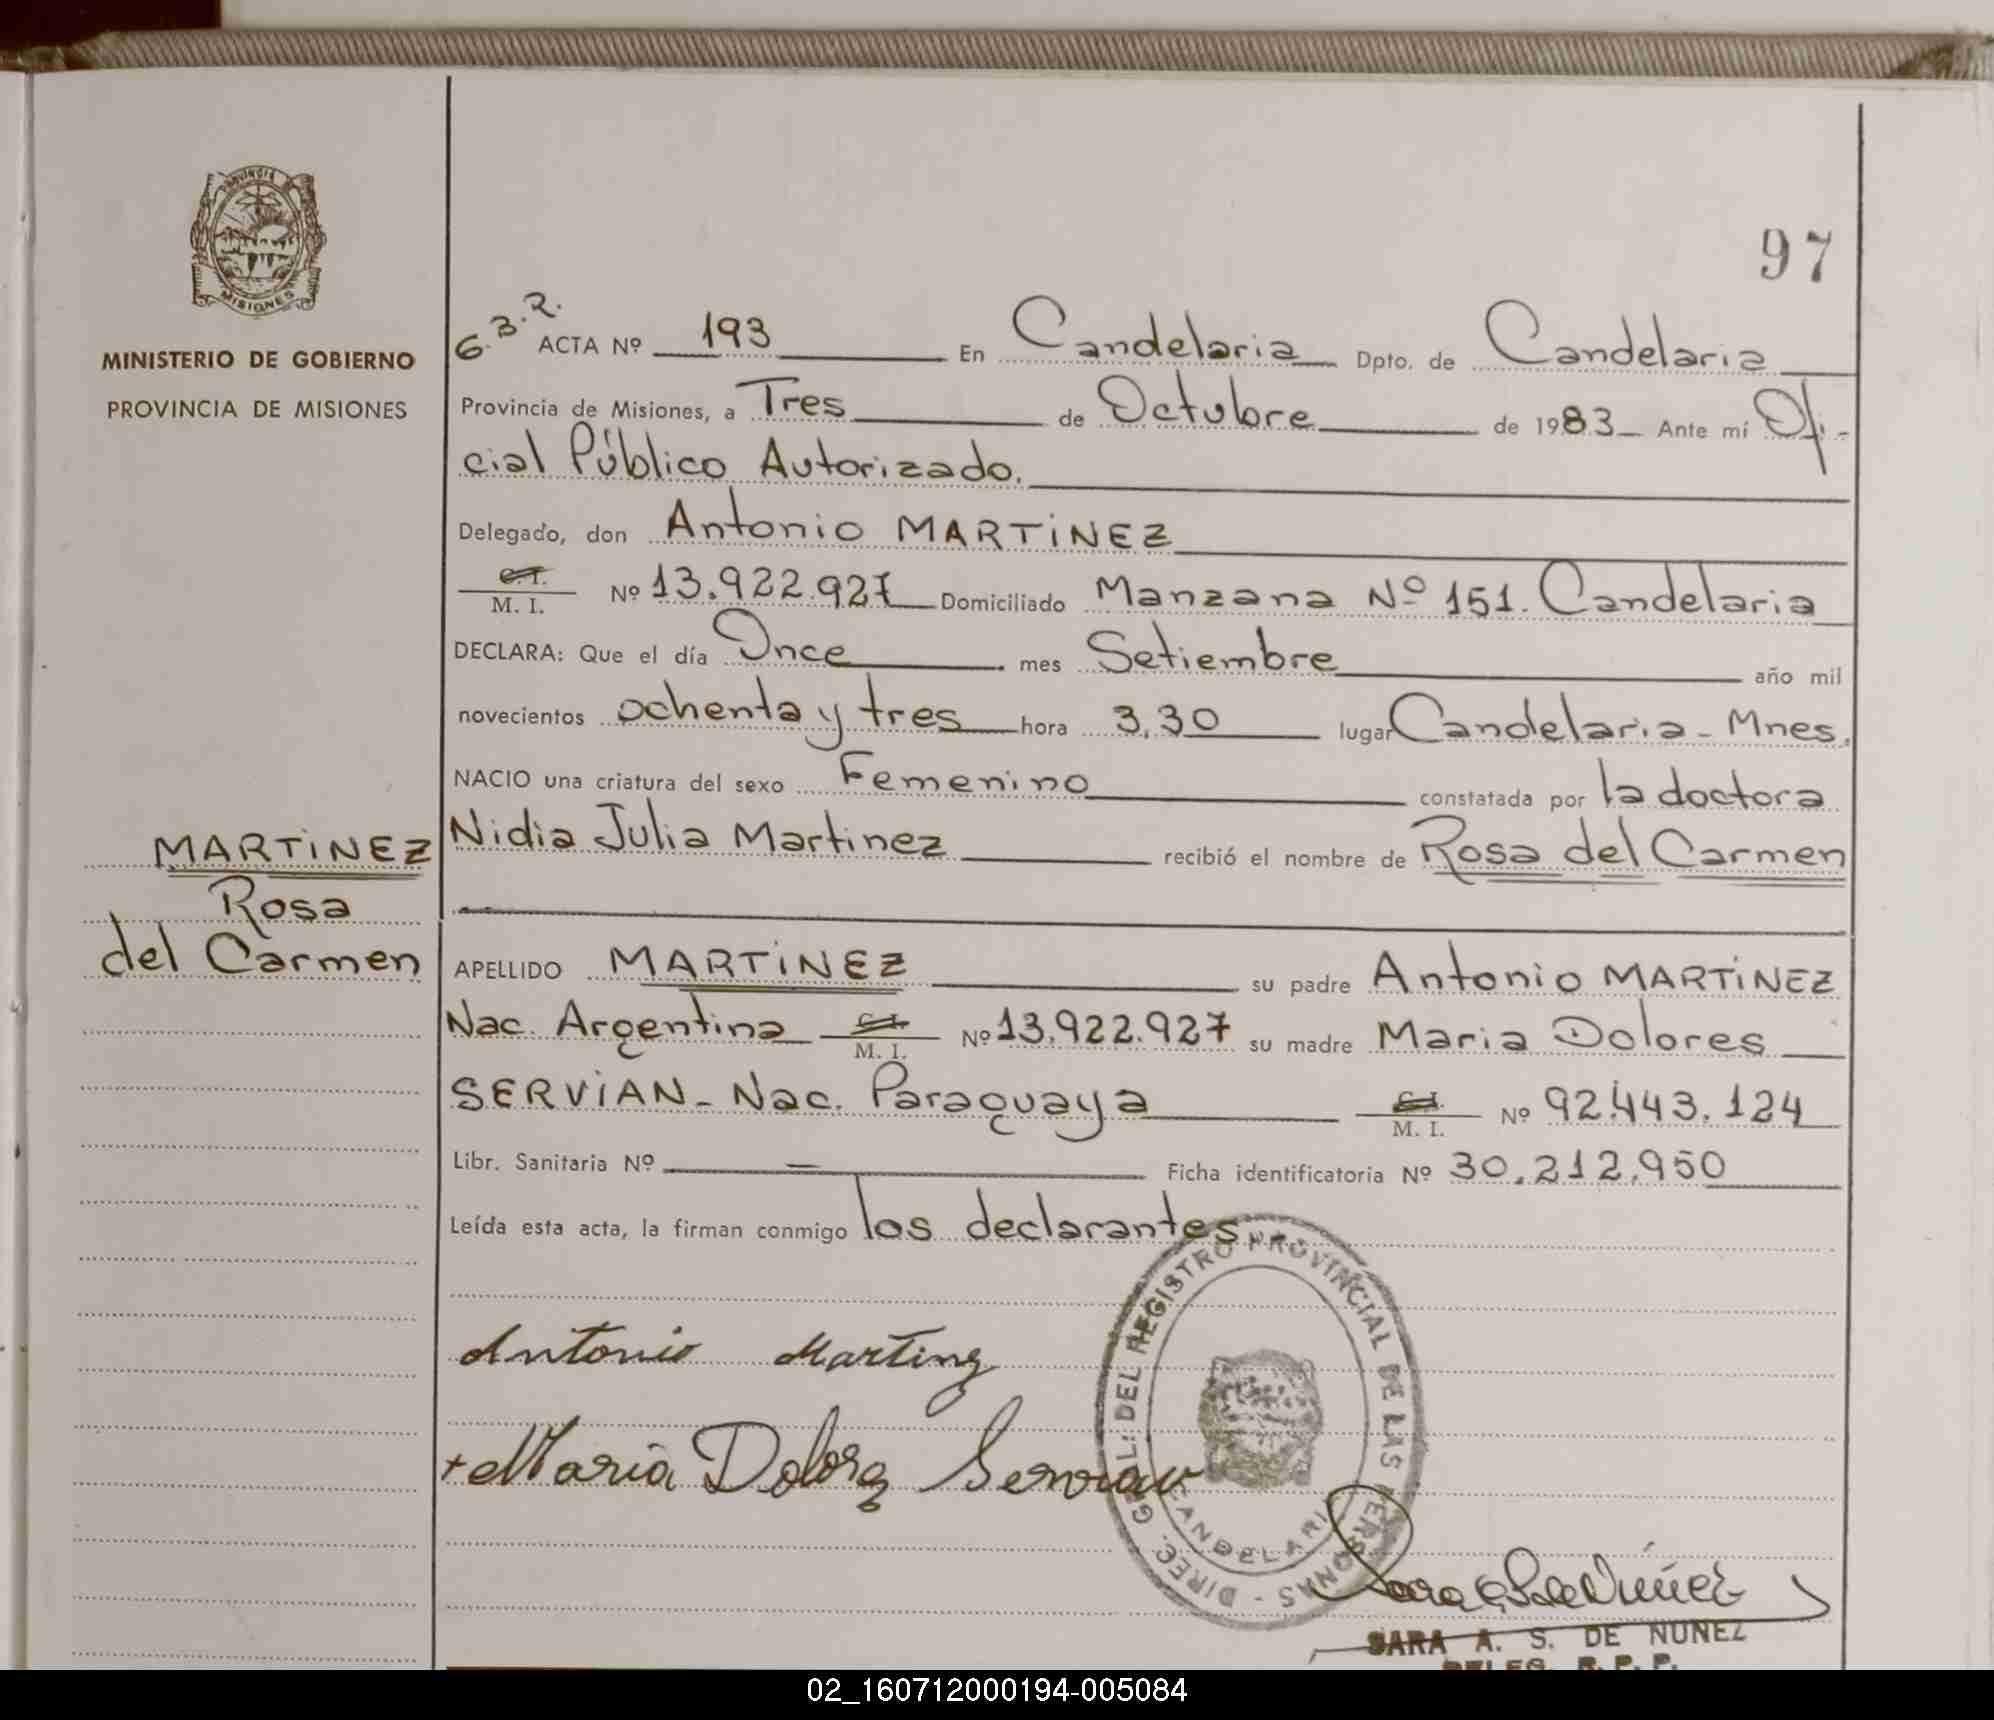 97
PROVINCIA
MISIONES
MINISTERIO DE GOBIERNO
PROVINCIA DE MISIONES
G.B.R. ACTA Nº 193 En Candelaria Dpto. de Candelaria
Provincia de Misiones, a Tres de Octubre de 1983 Ante mí Ofi-
cial Público Autorizado.
Delegado, don Antonio MARTINEZ
C. I.
M. I. Nº 13.922.927 Domiciliado Manzana Nº 151. Candelaria
DECLARA: Que el día Once mes Setiembre año mil
novecientos ochenta y tres hora 3,30 lugar Candelaria - Mnes.
NACIO una criatura del sexo Femenino constatada por la doctora
Nidia Julia Martinez recibió el nombre de Rosa del Carmen
MARTINEZ
Rosa
del Carmen
APELLIDO MARTINEZ su padre Antonio MARTINEZ
Nac. Argentina C. I. M. I. Nº 13.922.927 su madre Maria Dolores
SERVIAN - Nac. Paraguaya C. I. M. I. Nº 92.443.124
Libr. Sanitaria Nº — Ficha identificatoria Nº 30.212.950
Leída esta acta, la firman conmigo los declarantes
DIREC. GRAL. DEL REGISTRO PROVINCIAL DE LAS PERSONAS -
CANDELARIA
Antonio Martinez
+ Maria Dolores Servian
SARA A. S. DE NUÑEZ
DELEG. R. P. P.
02_160712000194-005084